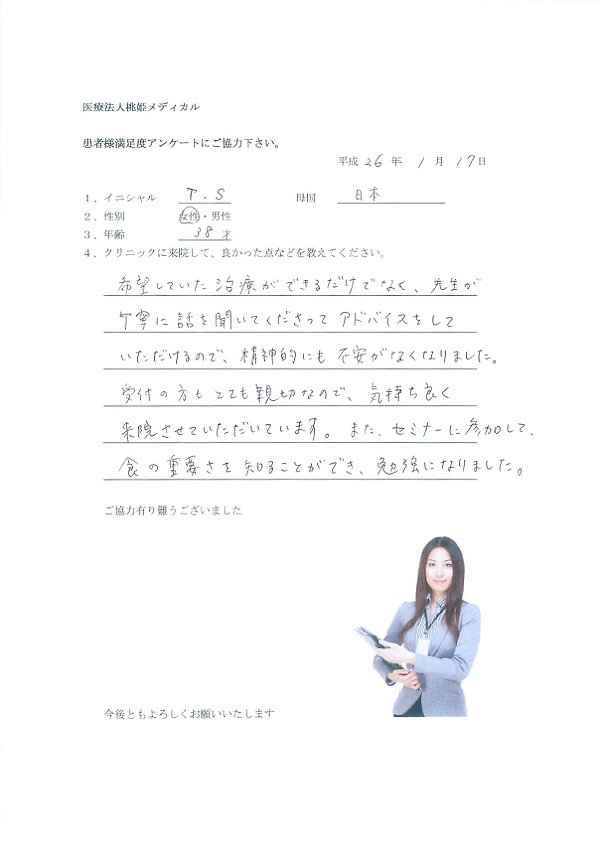 医療法人桃姫メディカル
患者様満足度アンケートにご協力下さい。
平成 26 年 1 月 17 日
1、イニシャル T.S 母国 日本
2、性別 女性・男性
3、年齢 38 才
4、クリニックに来院して、良かった点などを教えてください。
希望していた治療ができるだけでなく、先生が
丁寧に話を聞いてくださってアドバイスをして
いただけるので、精神的にも不安がなくなりました。
受付の方もとても親切なので、気持ち良く
来院させていただいています。また、セミナーに参加して、
食の重要さを知ることができ、勉強になりました。
ご協力有り難うございました
今後ともよろしくお願いいたします